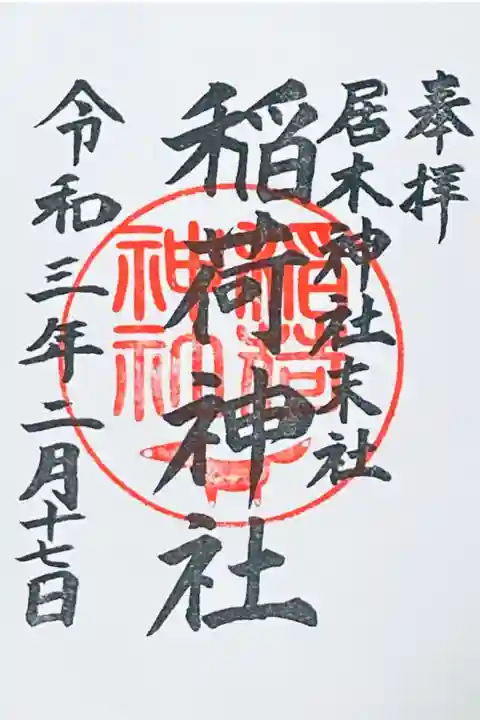 奉拝
居木神社末社
稲荷神社
稲荷
神社
令和三年二月十七日